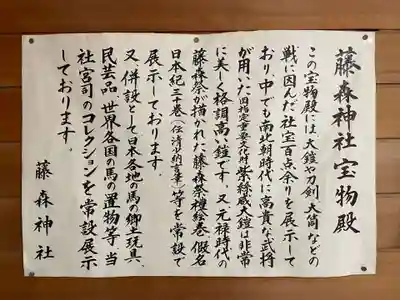 藤森神社宝物殿
この宝物殿には、大鎧や刀剣、大筒などの
戦に因んだ社宝百点余りを展示して
おり、中でも南北朝時代に高貴な武将
が用いた(旧指定重要文化財)紫絲威大鎧は非常
に美しく格調高い鎧です。又、元禄時代の
藤森祭が描かれた藤森祭禮絵巻、假名
日本紀三十巻(伝清少納言筆)等を常設で
展示しております。
又、併設として、日本各地の馬の郷土玩具、
民芸品、世界各国の馬の置物等、当
社宮司のコレクションを常設展示
しております。
藤森神社